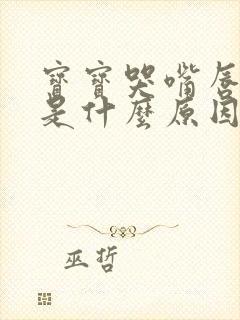 寶寶哭嘴唇
是什麼原因
巫哲